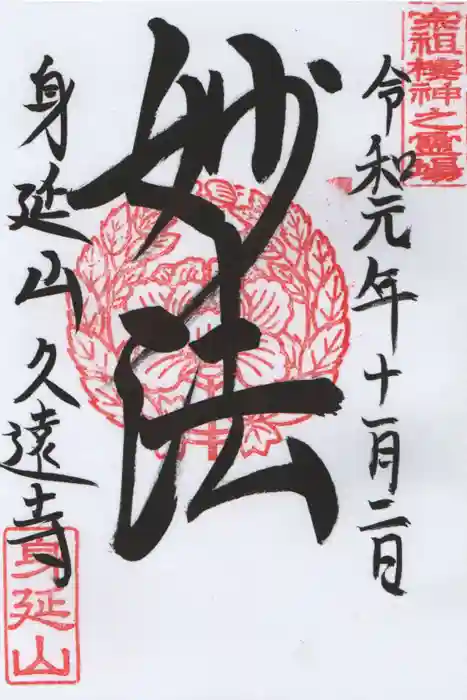 宗祖棲神之霊場
令和元年十一月二日
妙法
身延山久遠寺
身延山